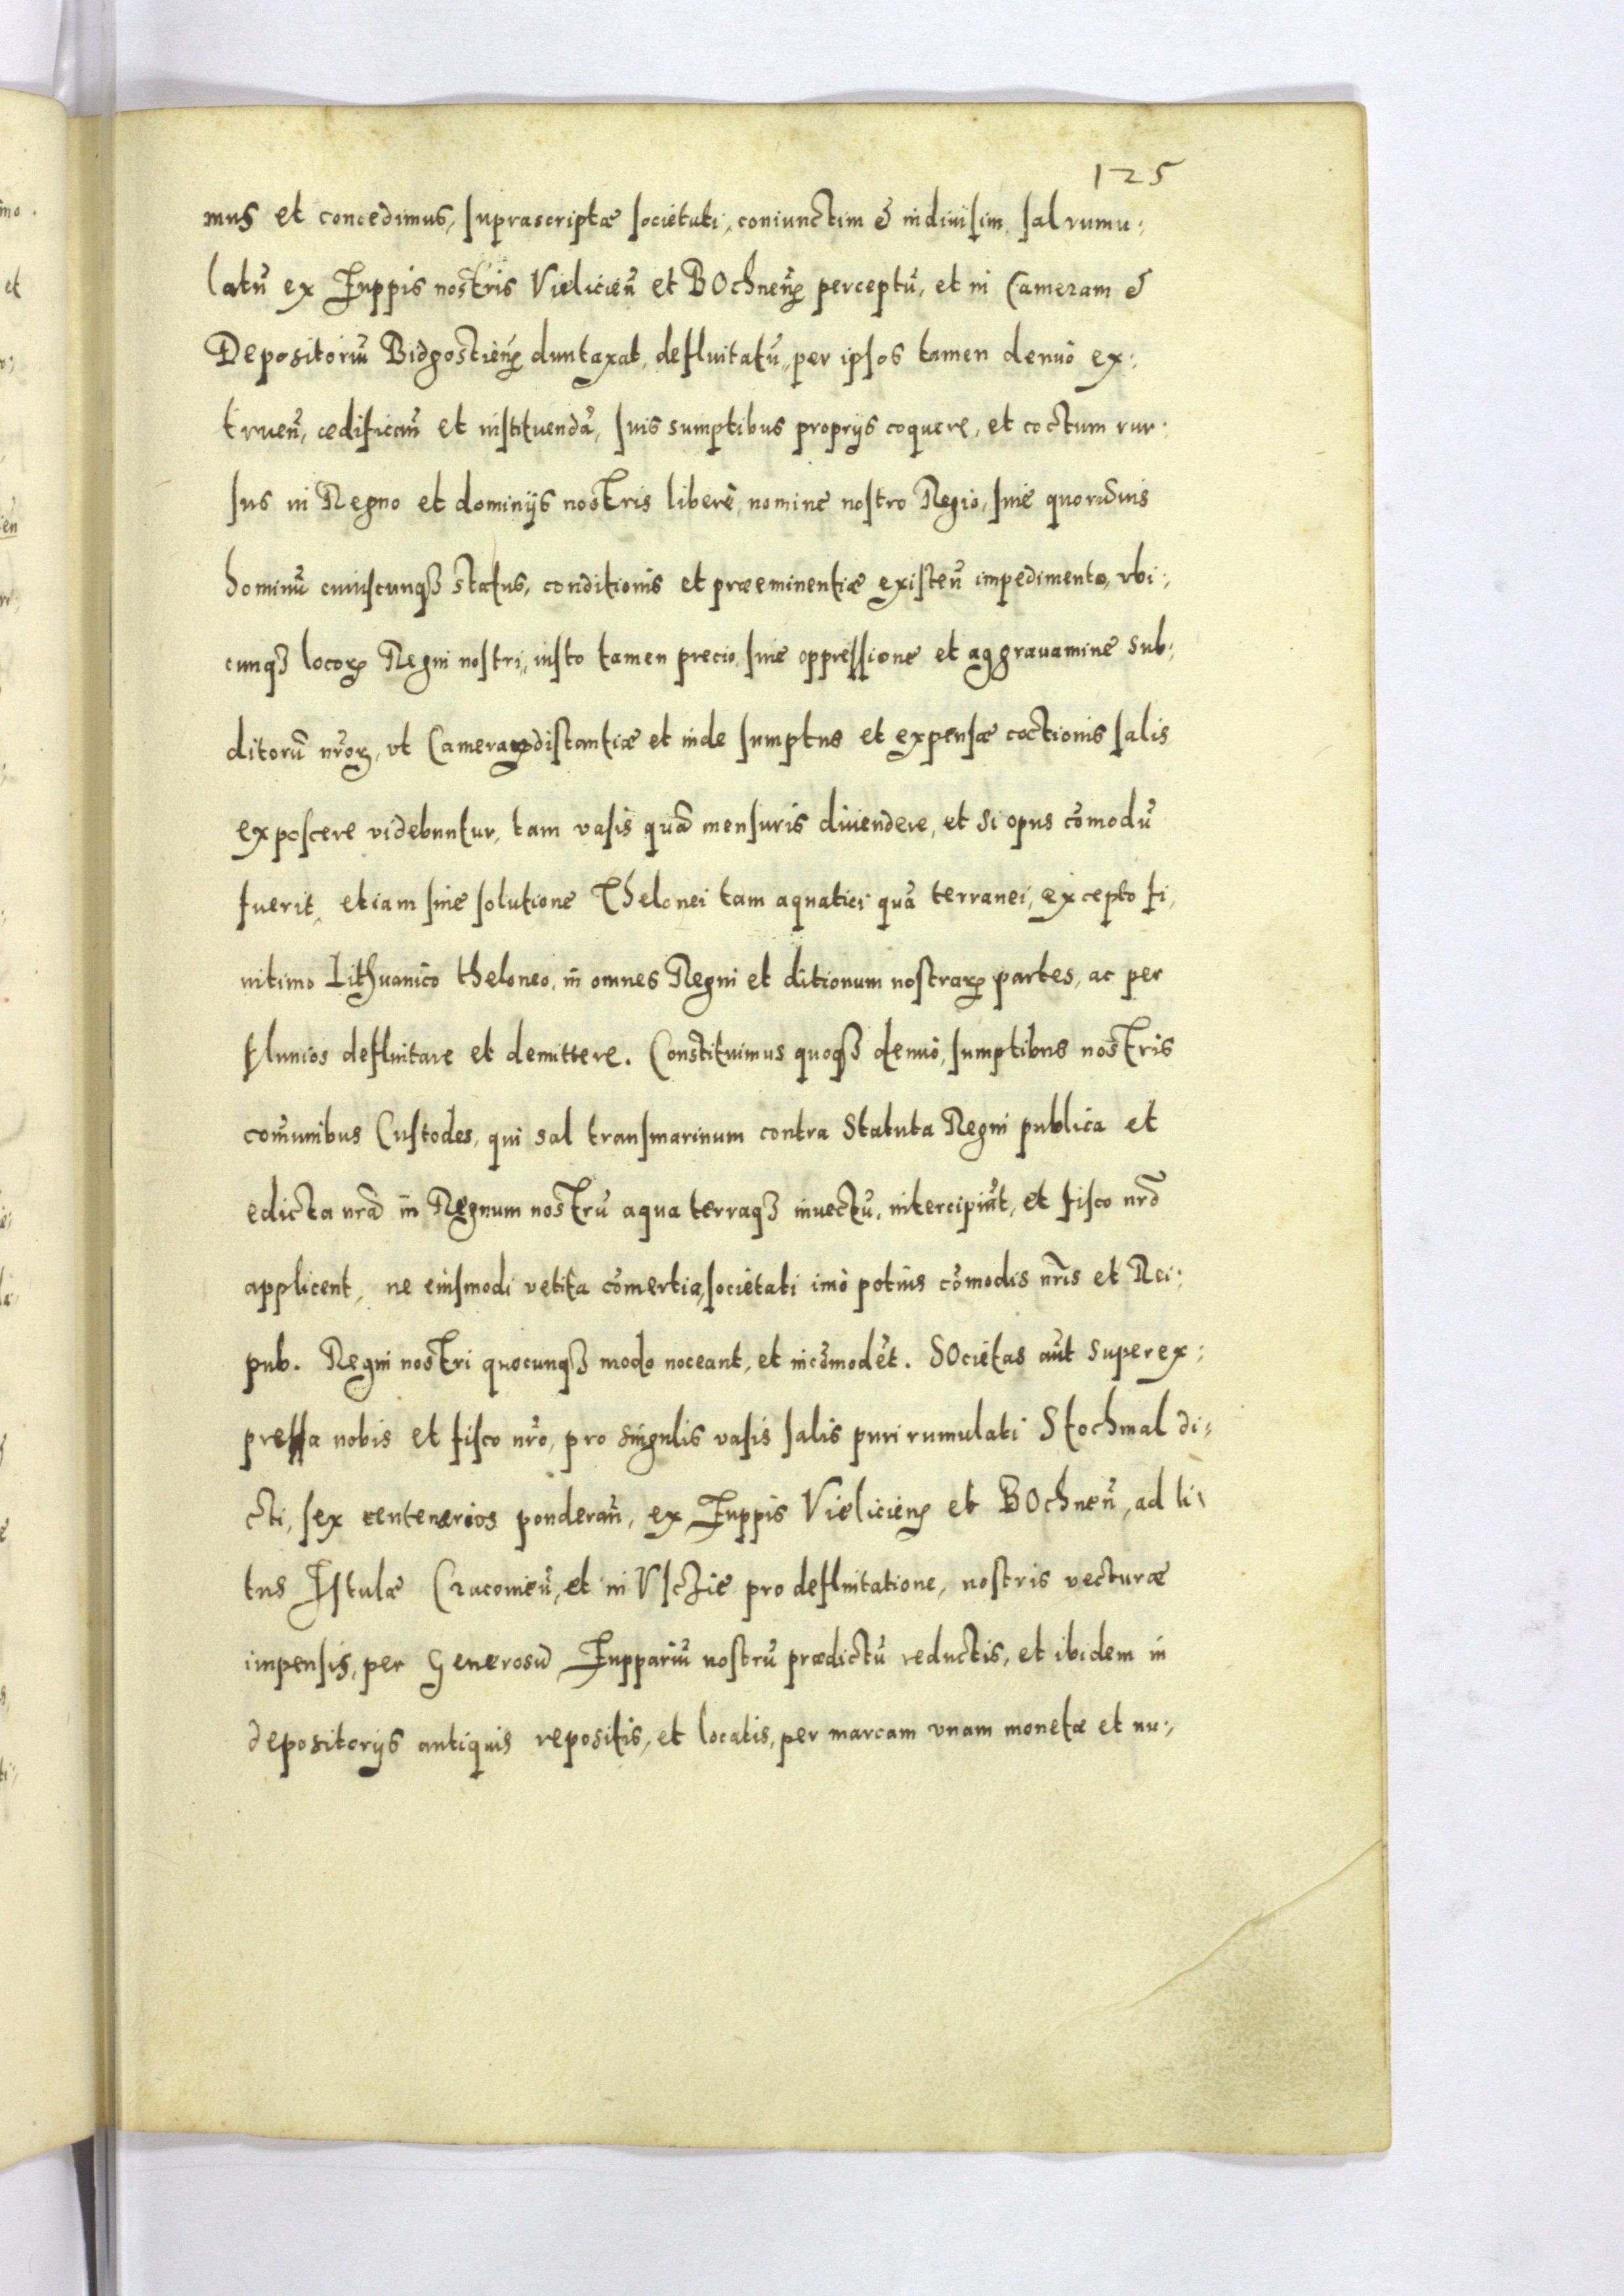 125
mus et concedimus, suprascriptæ societati, coniunctim & indiuisim, sal rumu:
latũ ex Zuppis nostris Vielicieñ et BOchneñ perceptũ, et in Cameram &
Depositoriũ Bidgostieñ duntaxat, defluitatũ, per ipsos tamen denuò ex:
trueñ, ædificañ et instituendã, suis sumptibus proprijs coquere, et coctum rur:
sus in Regno et dominijs nostris liberè, nomine nostro Regio, sine quorũuis
hominũ cuiuscunqꝫ status, conditionis et præeminentiæ existeñ impedimento, vbi:
cunqꝫ locoꝝ Regni nostri, iusto tamen precio, sine oppressione et aggrauamine sub:
ditorũ nr̃oꝝ, vt Cameraꝝ distantiæ et inde sumptus et expensæ coctionis salis
exposcere videbuntur, tam vasis quã mensuris diuendere, et si opus cõmodũ
fuerit, etiam sine solutione Thelonei tam aquatici quã terranei, excepto fi,
nitimo Lithuanico theloneo, in omnes Regni et ditionum nostraꝝ partes, ac per
fluuios defluitare et demittere. Constituimus quoqꝫ denuò, sumptibus nostris
com̃unibus Custodes, qui sal transmarinum contra Statuta Regni publica et
edicta nrã in Regnum nostrũ aqua terraqꝫ inuectũ, intercipiũt, et fisco nrõ
applicent, ne eiusmodi vetita cõmertia, societati imò potius cõmodis nr̃is et Rei:
pub. Regni nostri quocunqꝫ modo noceant, et incõmodẽt. SOcietas aũt superex:
pressa nobis et fisco nr̃o, pro singulis vasis salis puri rumulati Stochmal di:
cti, sex centenarios ponderañ, ex Zuppis Vielicieñ et BOchneñ, ad li
tus Istulæ Cracouieñ, et in Vsczie pro defluitatione, nostris vecturæ
impensis, per Generosũ Zuppariũ nostrũ prædictũ reductis, et ibidem in
depositorijs antiquis repositis, et locatis, per marcam vnam monetæ et nu:,